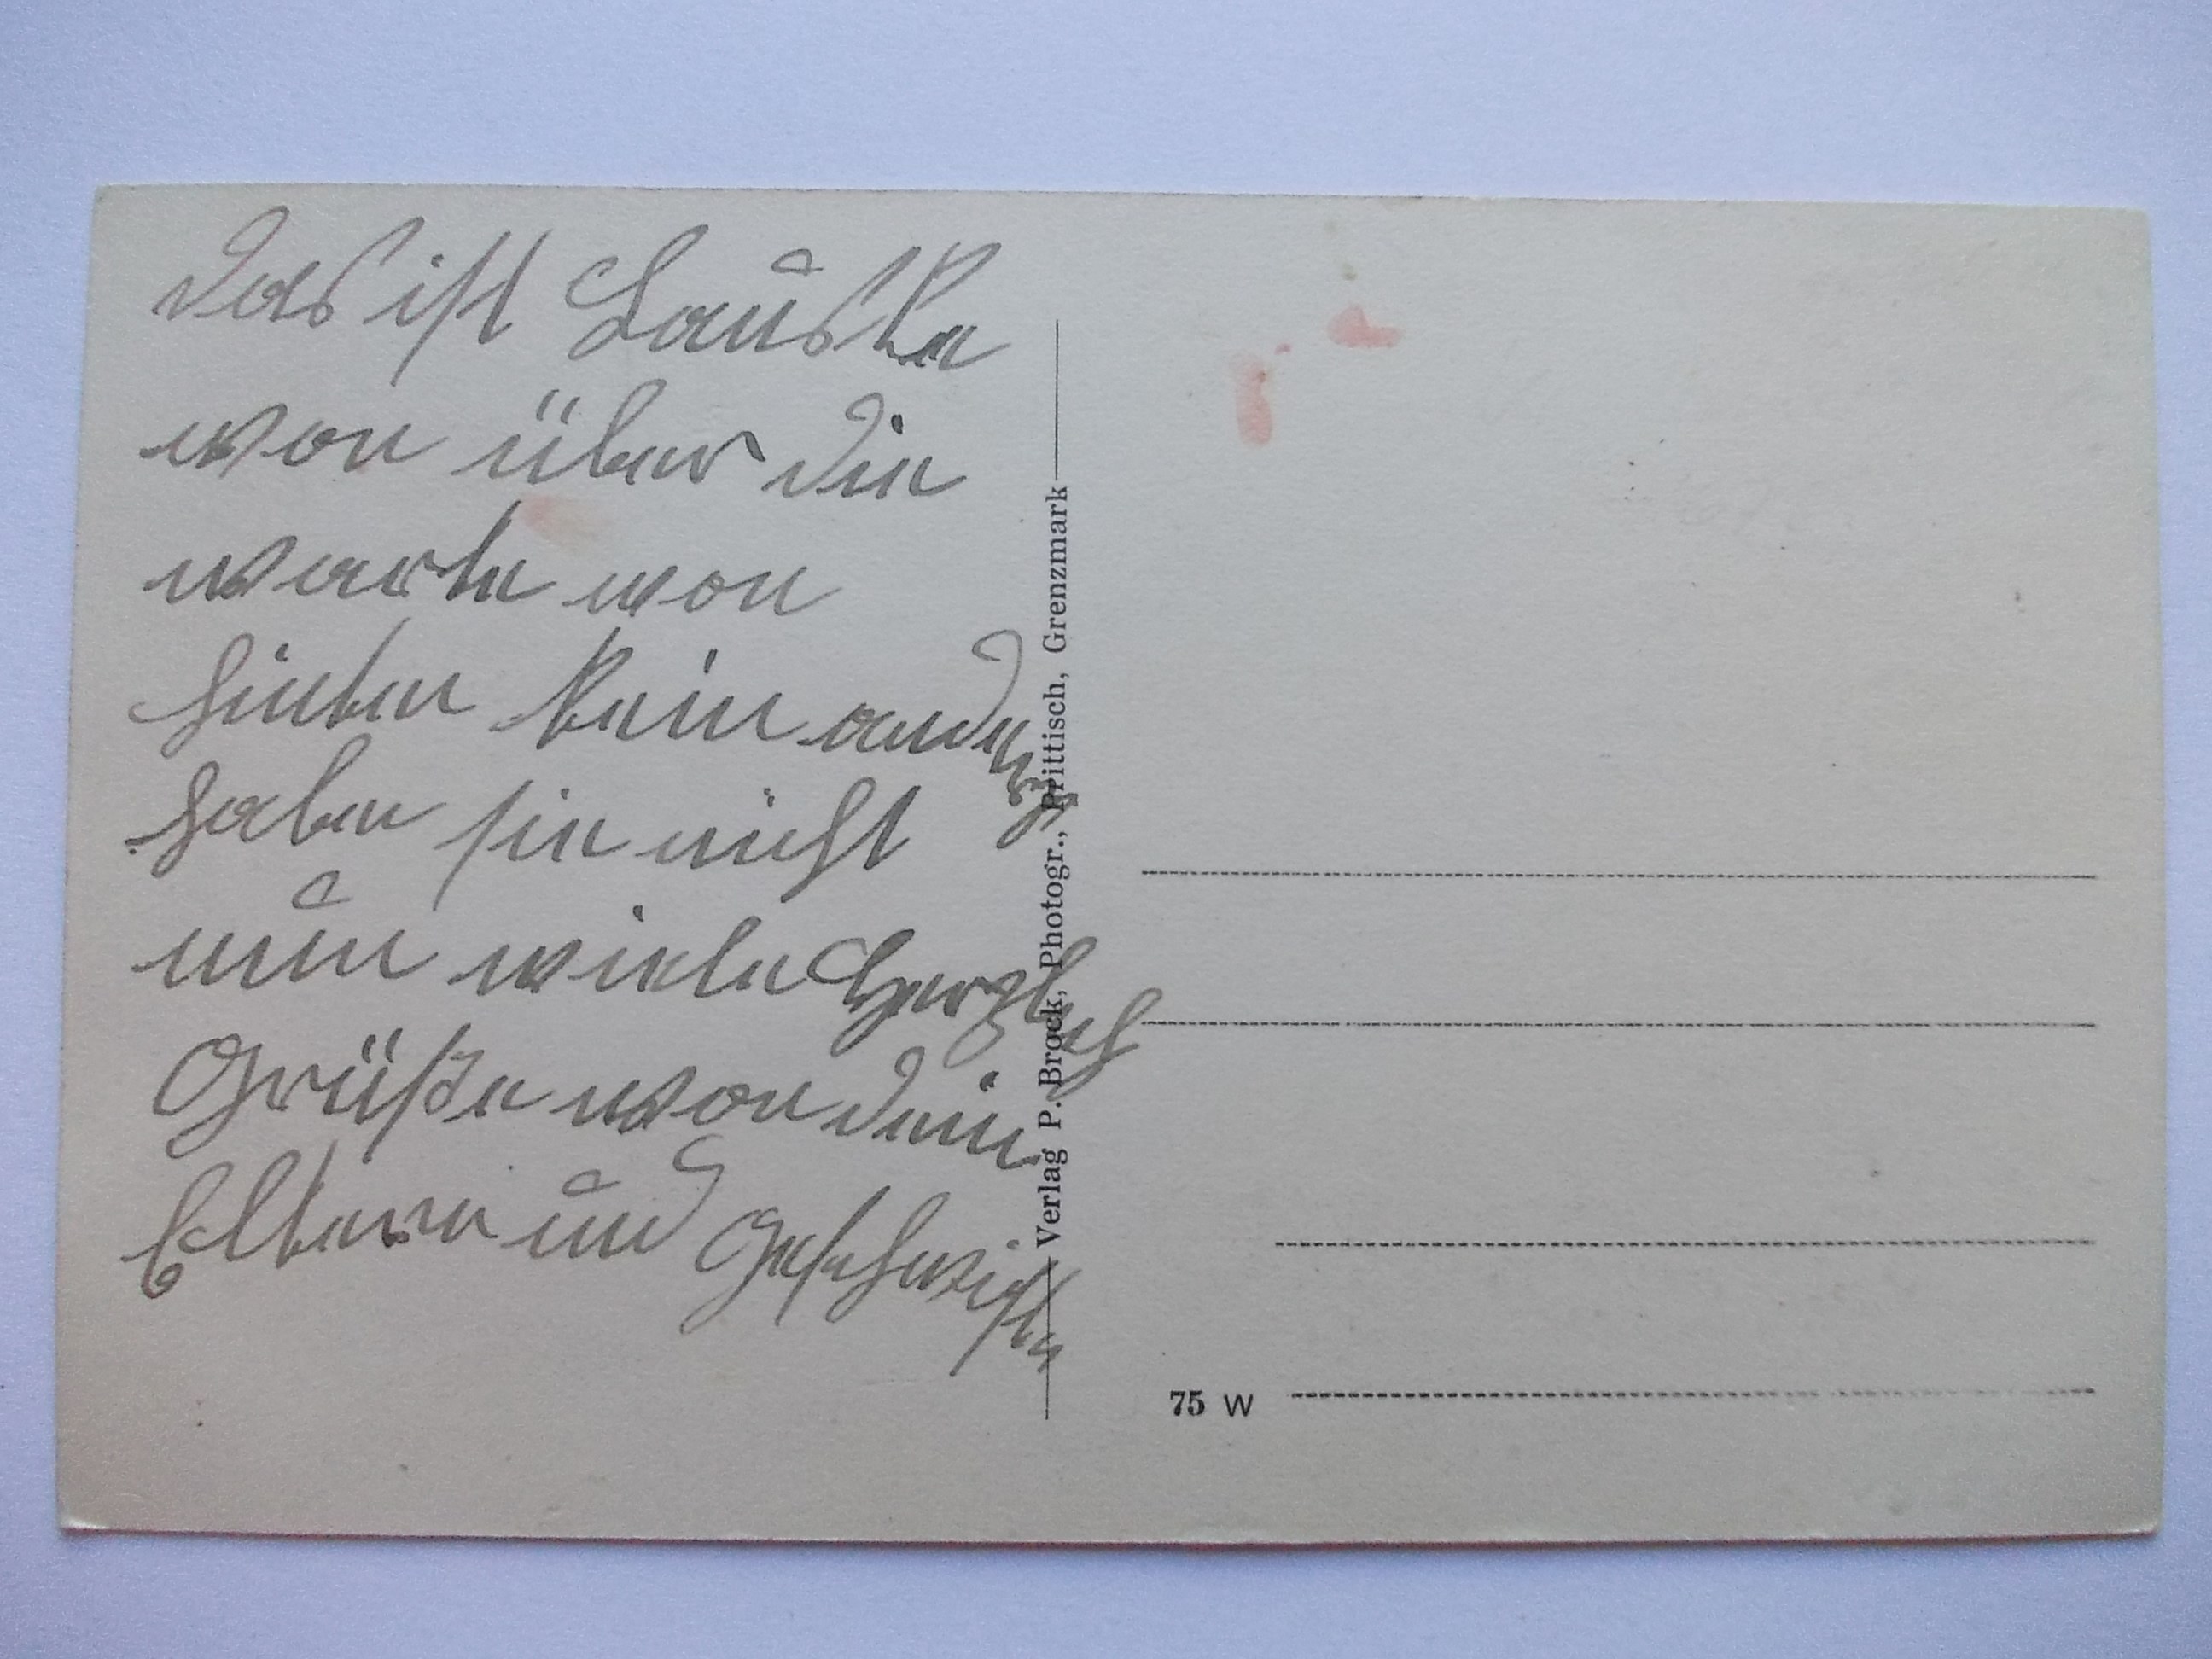 Das ist Lauske
von über die
warte von
hinten kein anders
haben sie nicht
nun viele Herzlich
Grüße von dein
Eltern und Geschwister
Verlag P. Brock, Photogr., Prittisch, Grenzmark
75 W